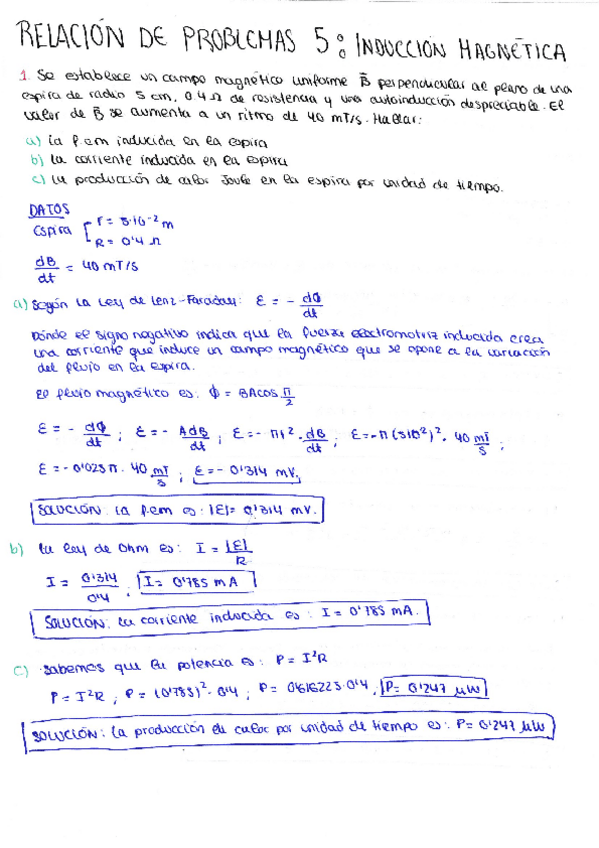 RELACIÓN DE PROBLEMAS 5: INDUCCIÓN MAGNÉTICA
1. Se establece un campo magnético uniforme B⃗ perpendicular al plano de una
espira de radio 5 cm, 0.4 Ω de resistencia y una autoinducción despreciable. El
valor de B⃗ se aumenta a un ritmo de 40 mT/s. Hallar:
a) la f.em inducida en la espira
b) la corriente inducida en la espira
c) la producción de calor Joule en la espira por unidad de tiempo.
DATOS
Espira [ r = 5·10⁻² m
R = 0'4 Ω
dB/dt = 40 mT/s
a) Según la Ley de Lenz-Faraday: ε = - dΦ/dt
Dónde el signo negativo indica que la fuerza electromotriz inducida crea
una corriente que induce un campo magnético que se opone a la variación
del flujo en la espira.
El flujo magnético es: Φ = BA cos π/2
ε = - dΦ/dt ; ε = - A dB/dt ; ε = - πr² · dB/dt ; ε = -π (5·10⁻²)² · 40 mT/s ;
ε = - 0'025π · 40 mT/s ; ε = - 0'314 mV.
SOLUCIÓN: la f.em es: |ε| = 0'314 mV.
b) la ley de Ohm es: I = |ε|/R
I = 0'314/0'4 ; I = 0'785 mA
SOLUCIÓN: la corriente inducida es: I = 0'785 mA.
c) Sabemos que la potencia es: P = I²R
P = I²R ; P = (0'785)² · 0'4 ; P = 0'616225 · 0'4 ; P = 0'247 μW
SOLUCIÓN: la producción de calor por unidad de tiempo es: P = 0'247 μW